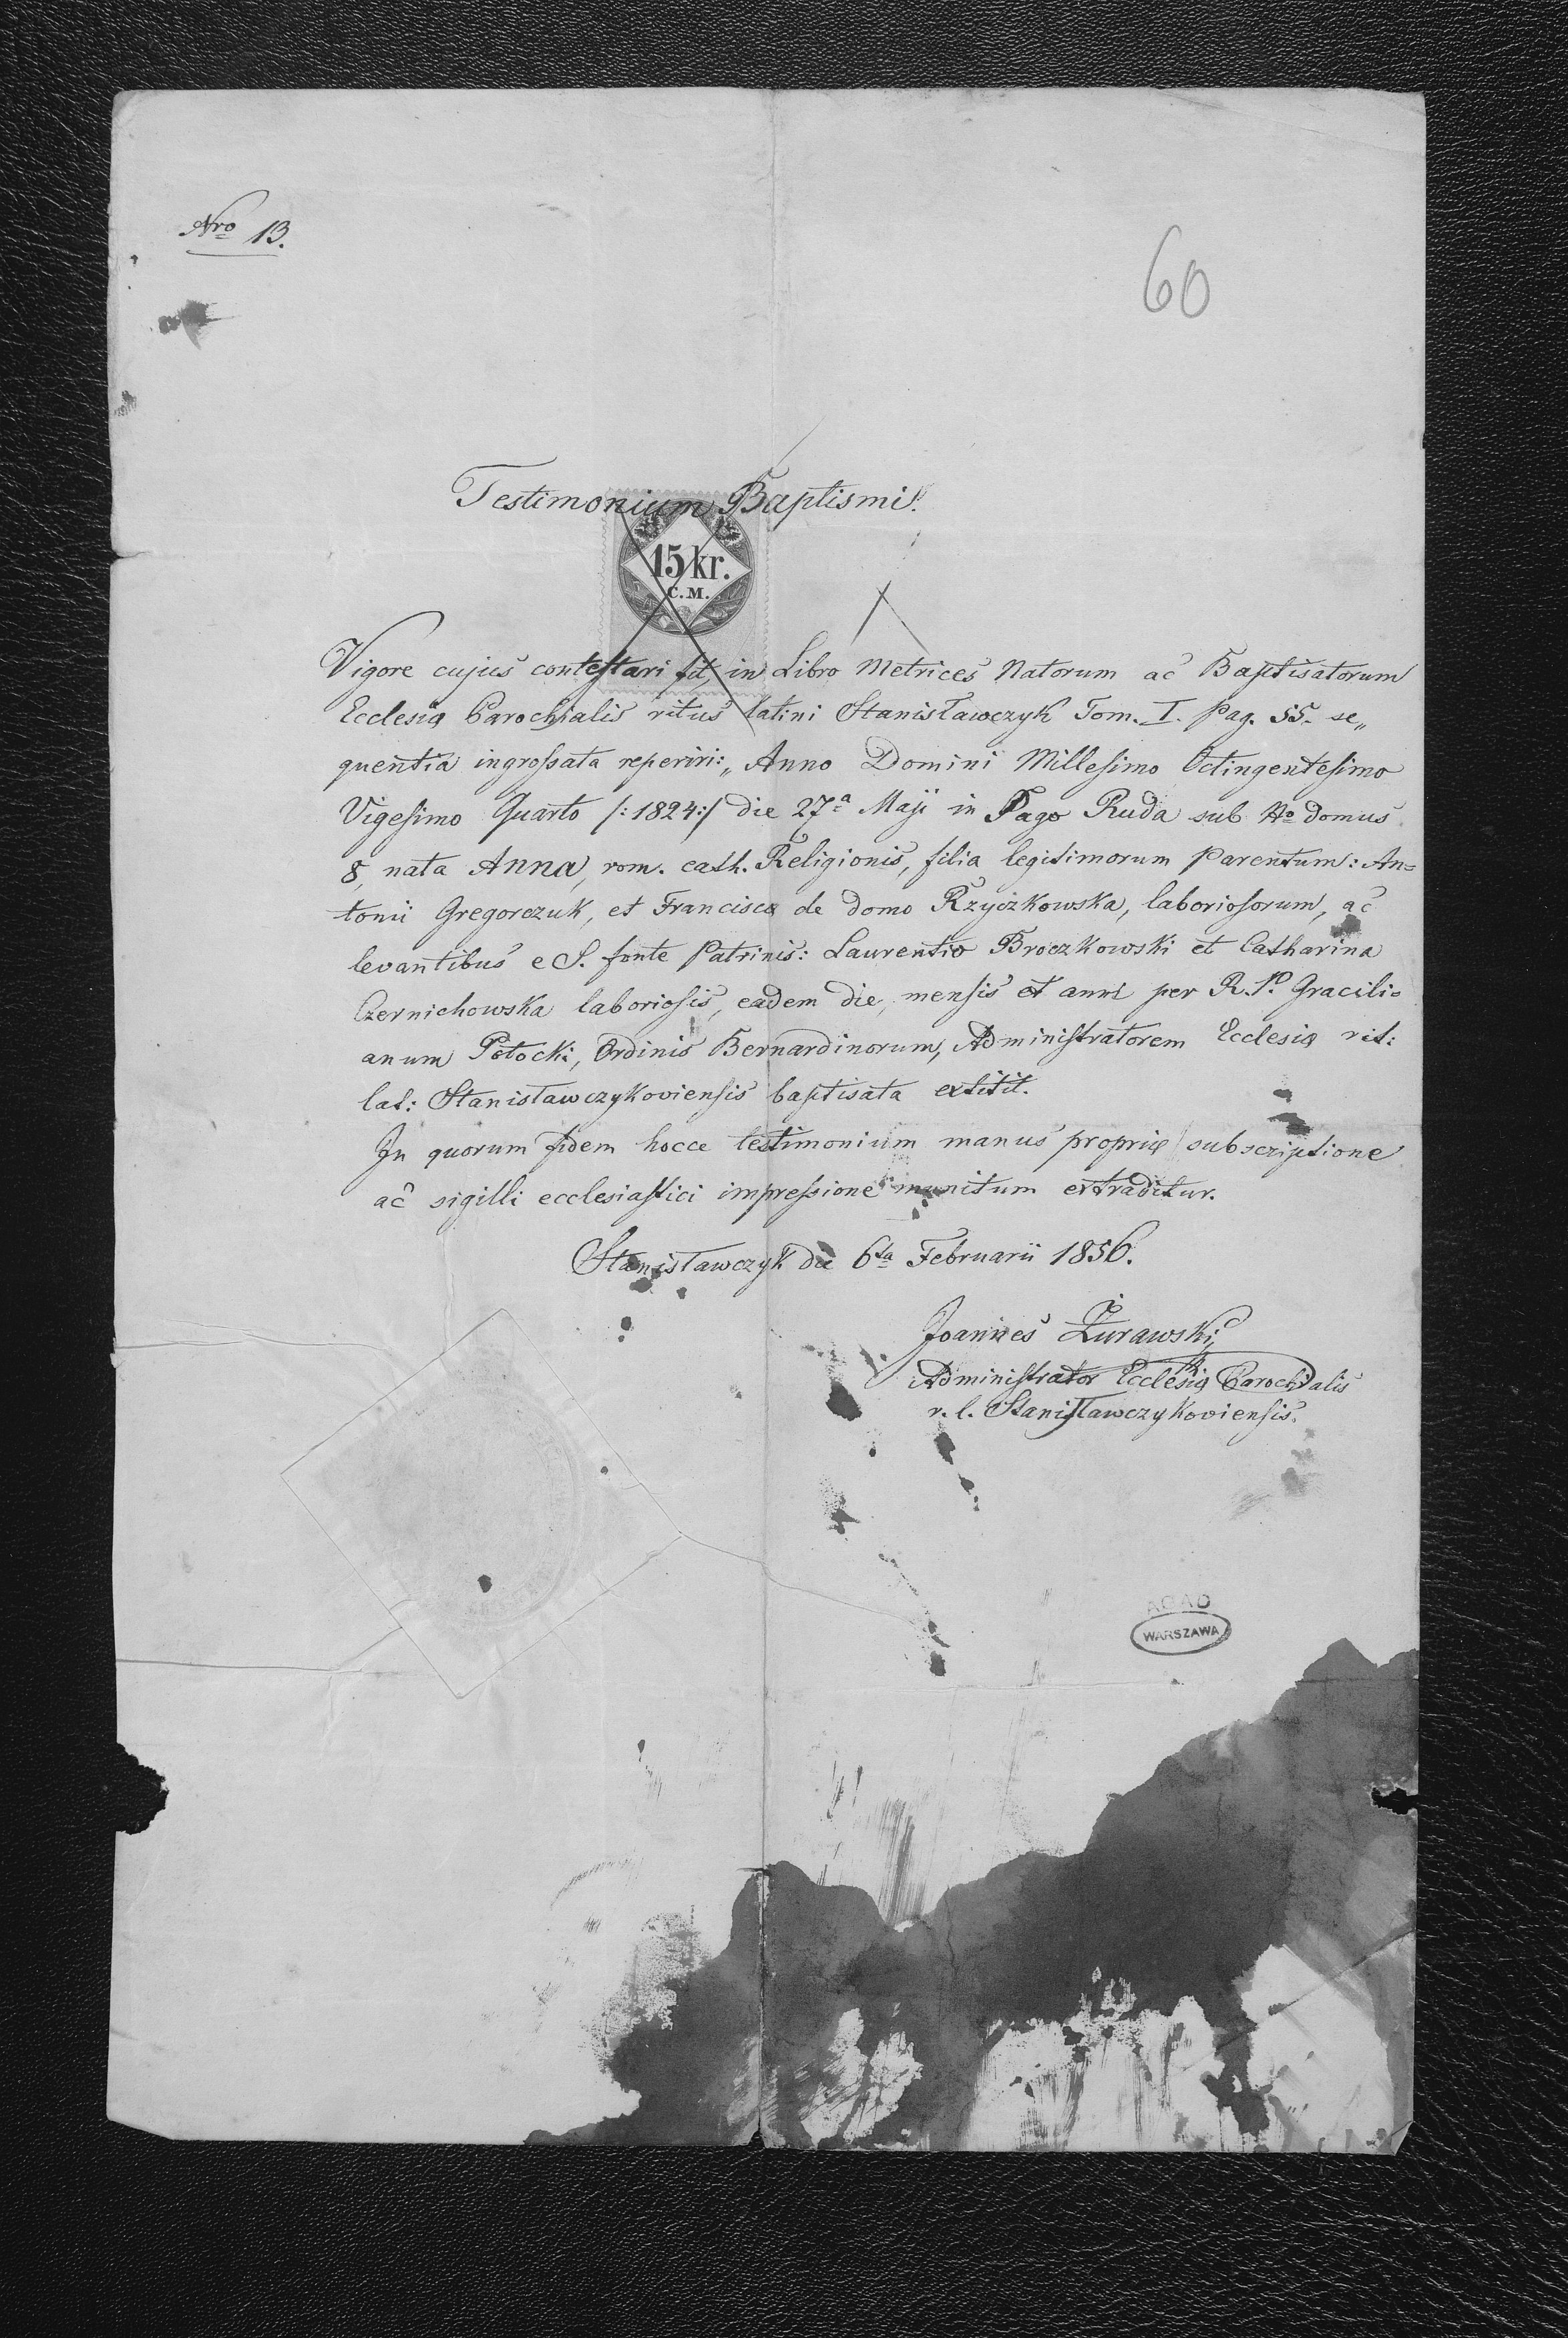 Nro 13.
60
Testimonium Baptismi!
15 kr.
C.M.
Vigore cujus contestari fit, in Libro Metrices Natorum ac Baptisatorum
Ecclesiæ Parochialis ritus latini Stanisławczyk Tom. I. Pag. 55. se„
quentia ingrossata reperiri: „Anno Domini Millesimo Octingentesimo
Vigesimo Quarto /:1824:/ die 27ª Maji in Pago Ruda sub No domus
8, nata Anna, rom. cath. Religionis, filia legitimorum Parentum: An=
tonii Gregorczuk, et Franciscæ de domo Rzyczkowska, laboriosorum, ac
levantibus e S. fonte Patrinis: Laurentio Broczkowski et Catharina
Czernichowska laboriosis, eadem die, mensis et anni per R.P. Gracili=
anum Potocki, Ordinis Bernardinorum, Administratorem Ecclesiæ rit:
lat: Stanisławczykoviensis baptisata extitit.
In quorum fidem hocce testimonium manus propriæ subscriptione
ac sigilli ecclesiastici impressione munitum extraditur.
Stanisławczyk die 6ta Februarii 1856.
Joannes Żurawski,
Administrator Ecclesiæ Parochialis
r. l. Stanisławczykoviensis.
AGAD
WARSZAWA